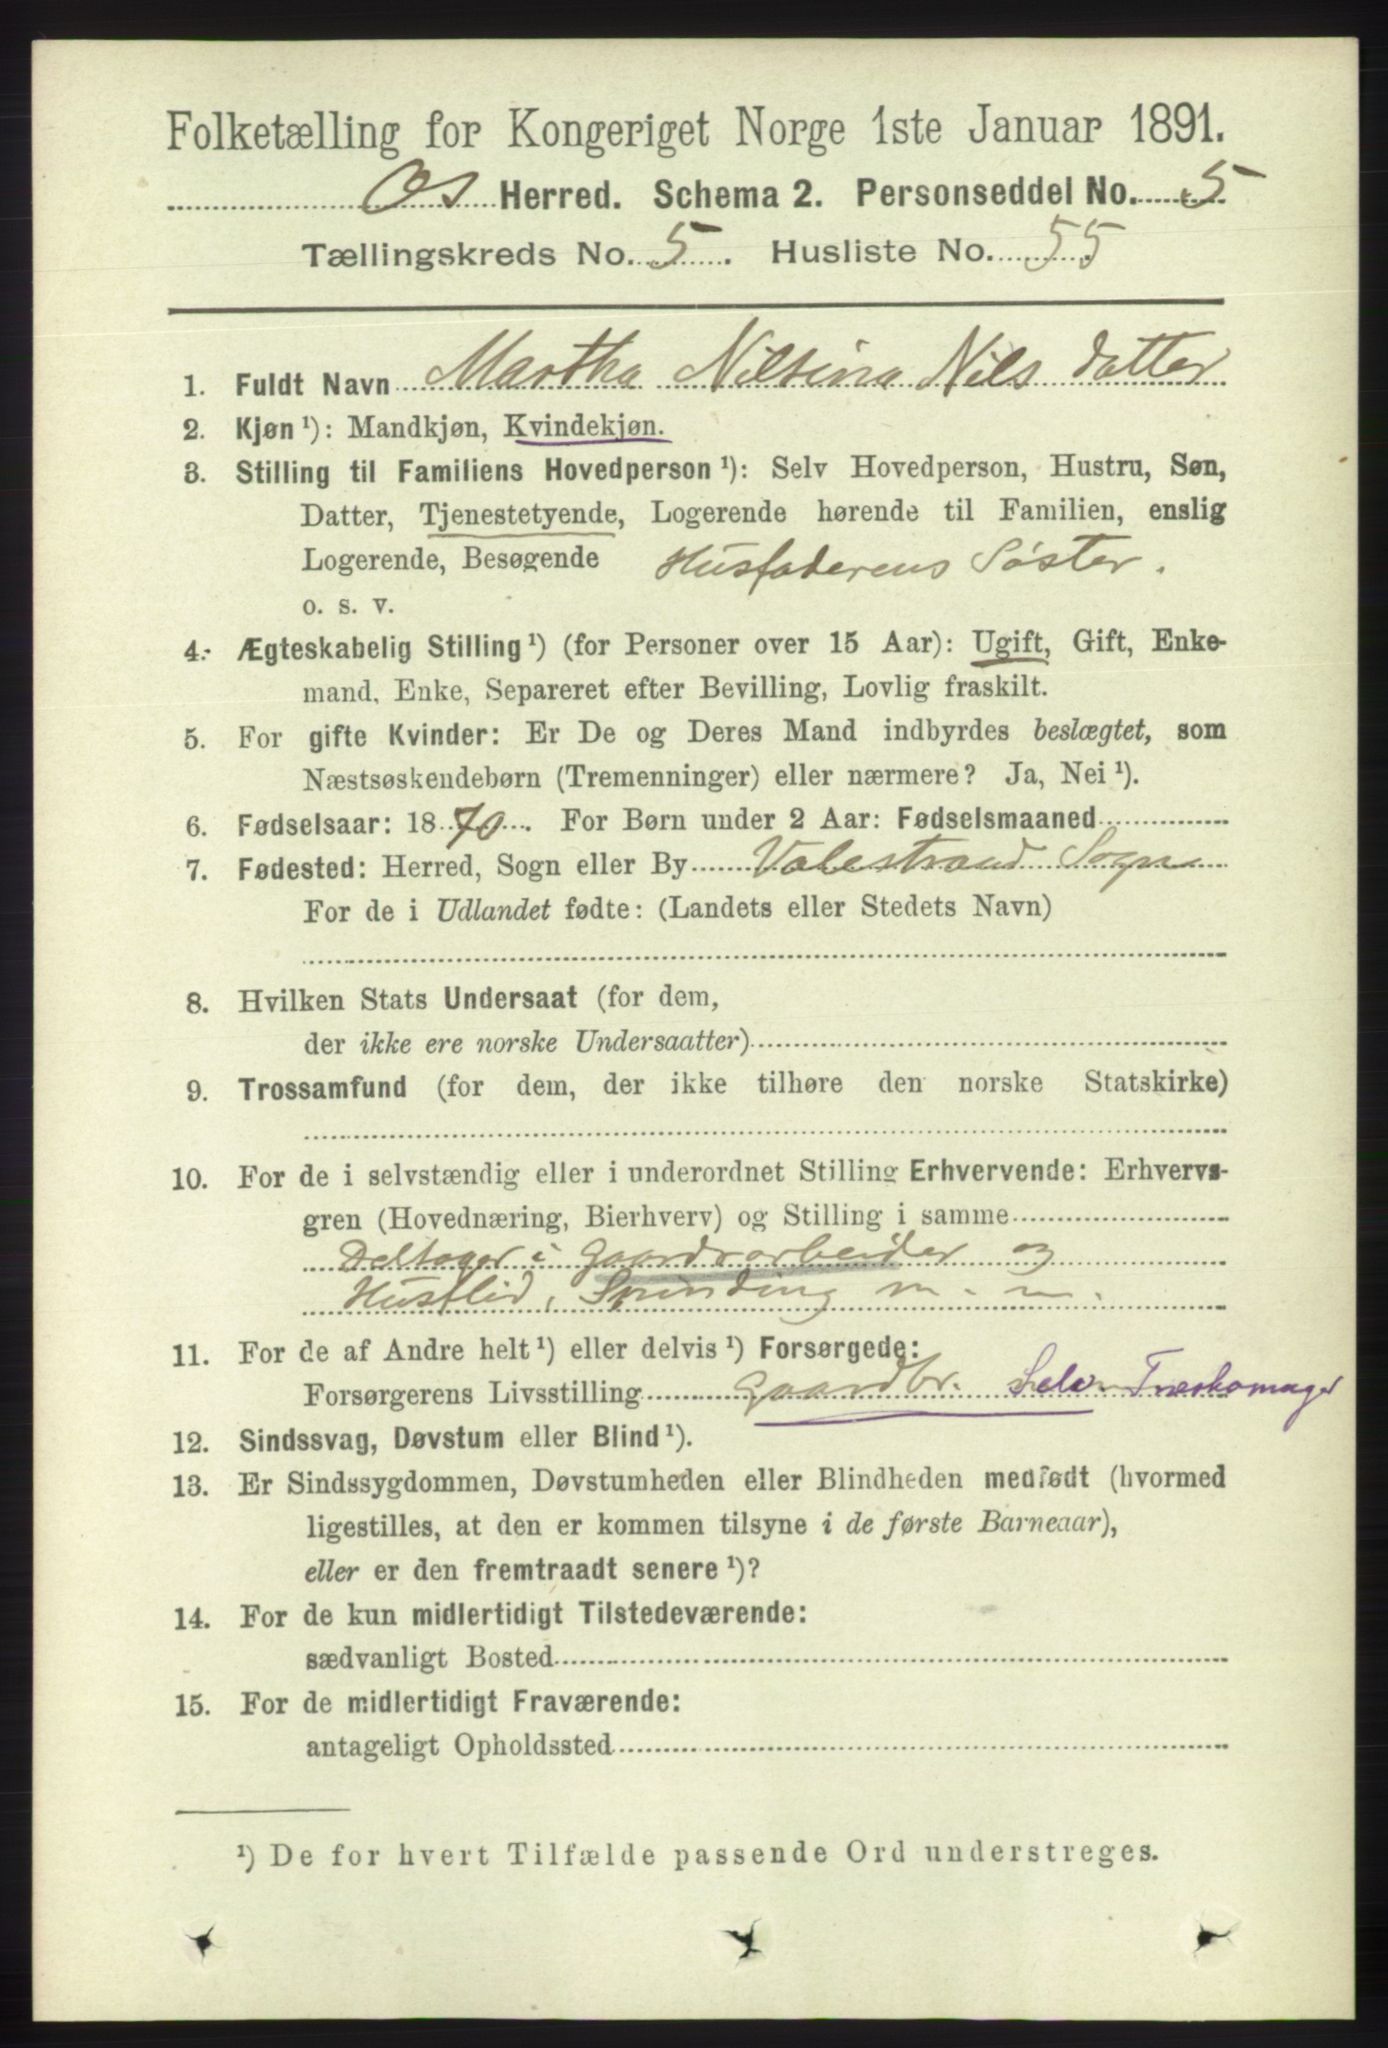 Folketælling for Kongeriget Norge 1ste Januar 1891.
Os Herred. Schema 2. Personseddel No. 5
Tællingskreds No. 5. Husliste No. 55
1. Fuldt Navn Martha Niltina Nils datter
2. Kjøn ¹): Mandkjøn, Kvindekjøn.
3. Stilling til Familiens Hovedperson ¹): Selv Hovedperson, Hustru, Søn,
Datter, Tjenestetyende, Logerende hørende til Familien, enslig
Logerende, Besøgende Husfaderens Søster.
o. s. v.
4. Ægteskabelig Stilling ¹) (for Personer over 15 Aar): Ugift, Gift, Enke-
mand, Enke, Separeret efter Bevilling, Lovlig fraskilt.
5. For gifte Kvinder: Er De og Deres Mand indbyrdes beslægtet, som
Næstsøskendebørn (Tremenninger) eller nærmere? Ja, Nei ¹).
6. Fødselsaar: 1870. For Børn under 2 Aar: Fødselsmaaned
7. Fødested: Herred, Sogn eller By Valestrand Sogn
For de i Udlandet fødte: (Landets eller Stedets Navn)
8. Hvilken Stats Undersaat (for dem,
der ikke ere norske Undersaatter)
9. Trossamfund (for dem, der ikke tilhøre den norske Statskirke)
10. For de i selvstændig eller i underordnet Stilling Erhvervende: Erhvervs-
gren (Hovednæring, Bierhverv) og Stilling i samme
Deltager i Gaardsarbeider og
Husflid, Spinding m. m.
11. For de af Andre helt ¹) eller delvis ¹) Forsørgede:
Forsørgerens Livsstilling Gaardbr. Selv Træskomager
12. Sindssvag, Døvstum eller Blind ¹).
13. Er Sindssygdommen, Døvstumheden eller Blindheden medfødt (hvormed
ligestilles, at den er kommen tilsyne i de første Barneaar),
eller er den fremtraadt senere ¹)?
14. For de kun midlertidigt Tilstedeværende:
sædvanligt Bosted
15. For de midlertidigt Fraværende:
antageligt Opholdssted
¹) De for hvert Tilfælde passende Ord understreges.